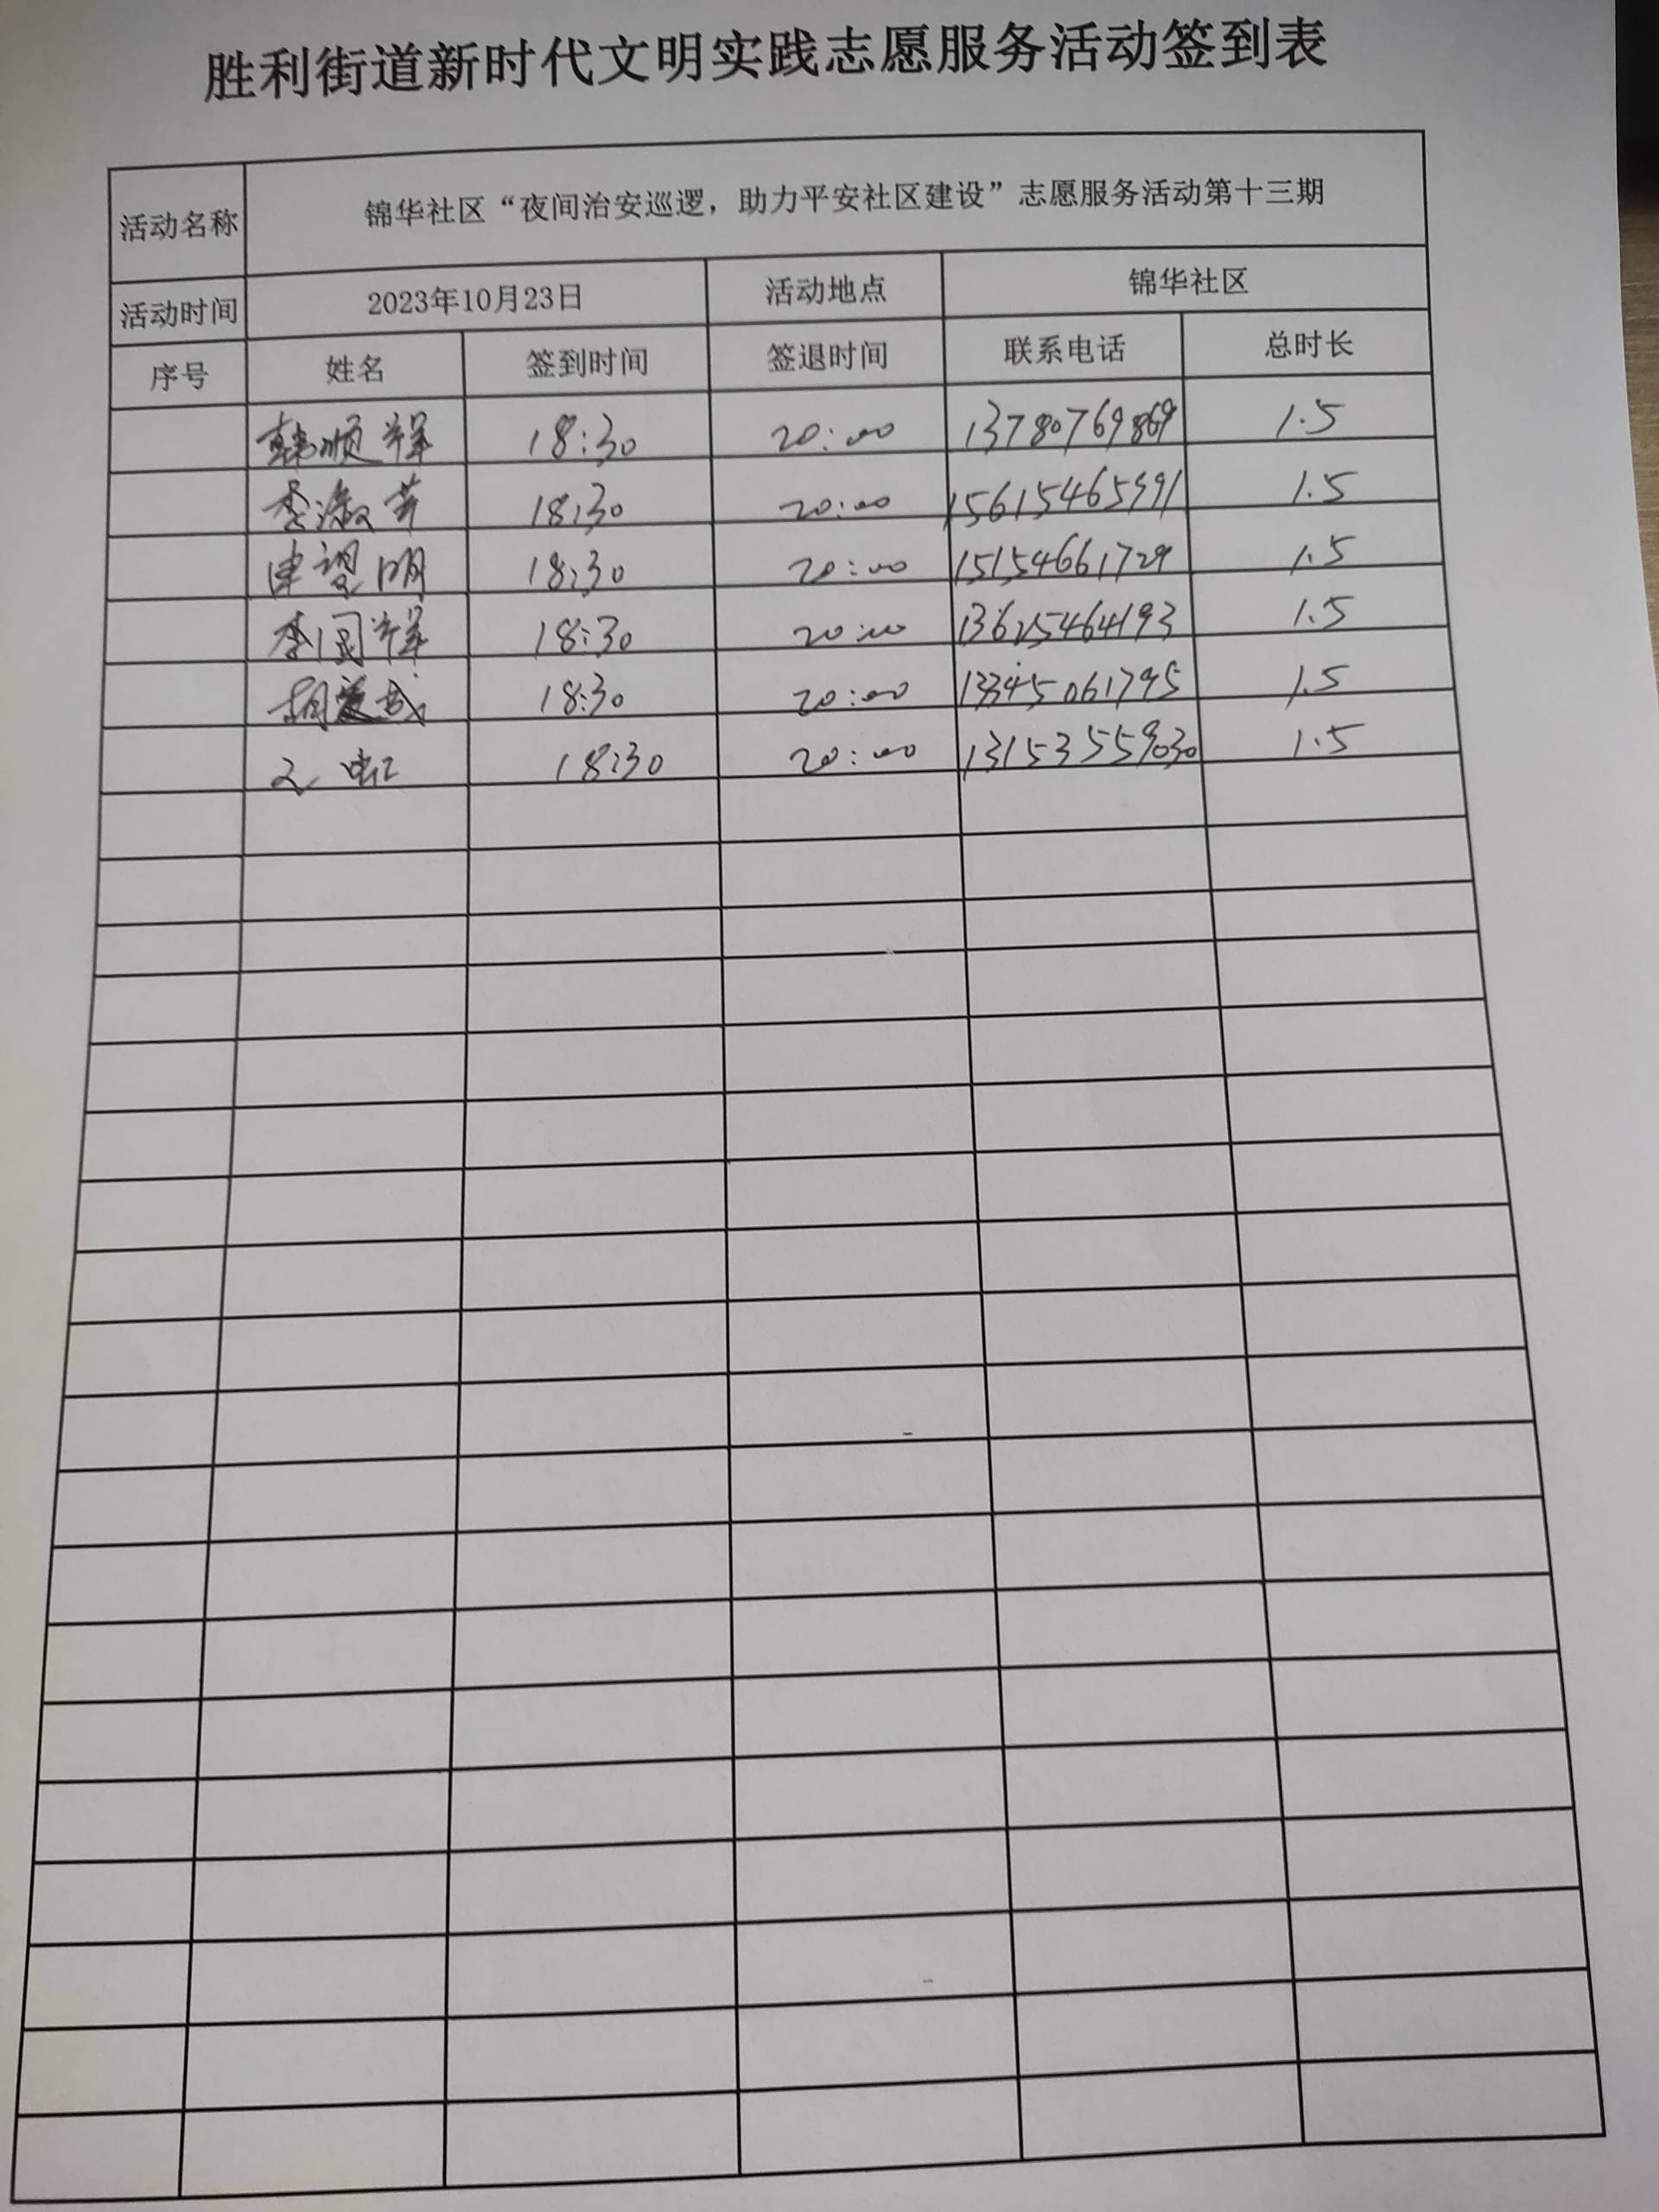 胜利街道新时代文明实践志愿服务活动签到表
活动名称 锦华社区“夜间治安巡逻，助力平安社区建设”志愿服务活动第十三期
活动时间 2023年10月23日 活动地点 锦华社区
序号 姓名 签到时间 签退时间 联系电话 总时长
韩顺祥 18:30 20:00 13780769869 1.5
李淑芳 18:30 20:00 15615465991 1.5
申望明 18:30 20:00 15154661729 1.5
李国祥 18:30 20:00 13625464193 1.5
胡爱武 18:30 20:00 13345061795 1.5
18:30 20:00 13153559030 1.5